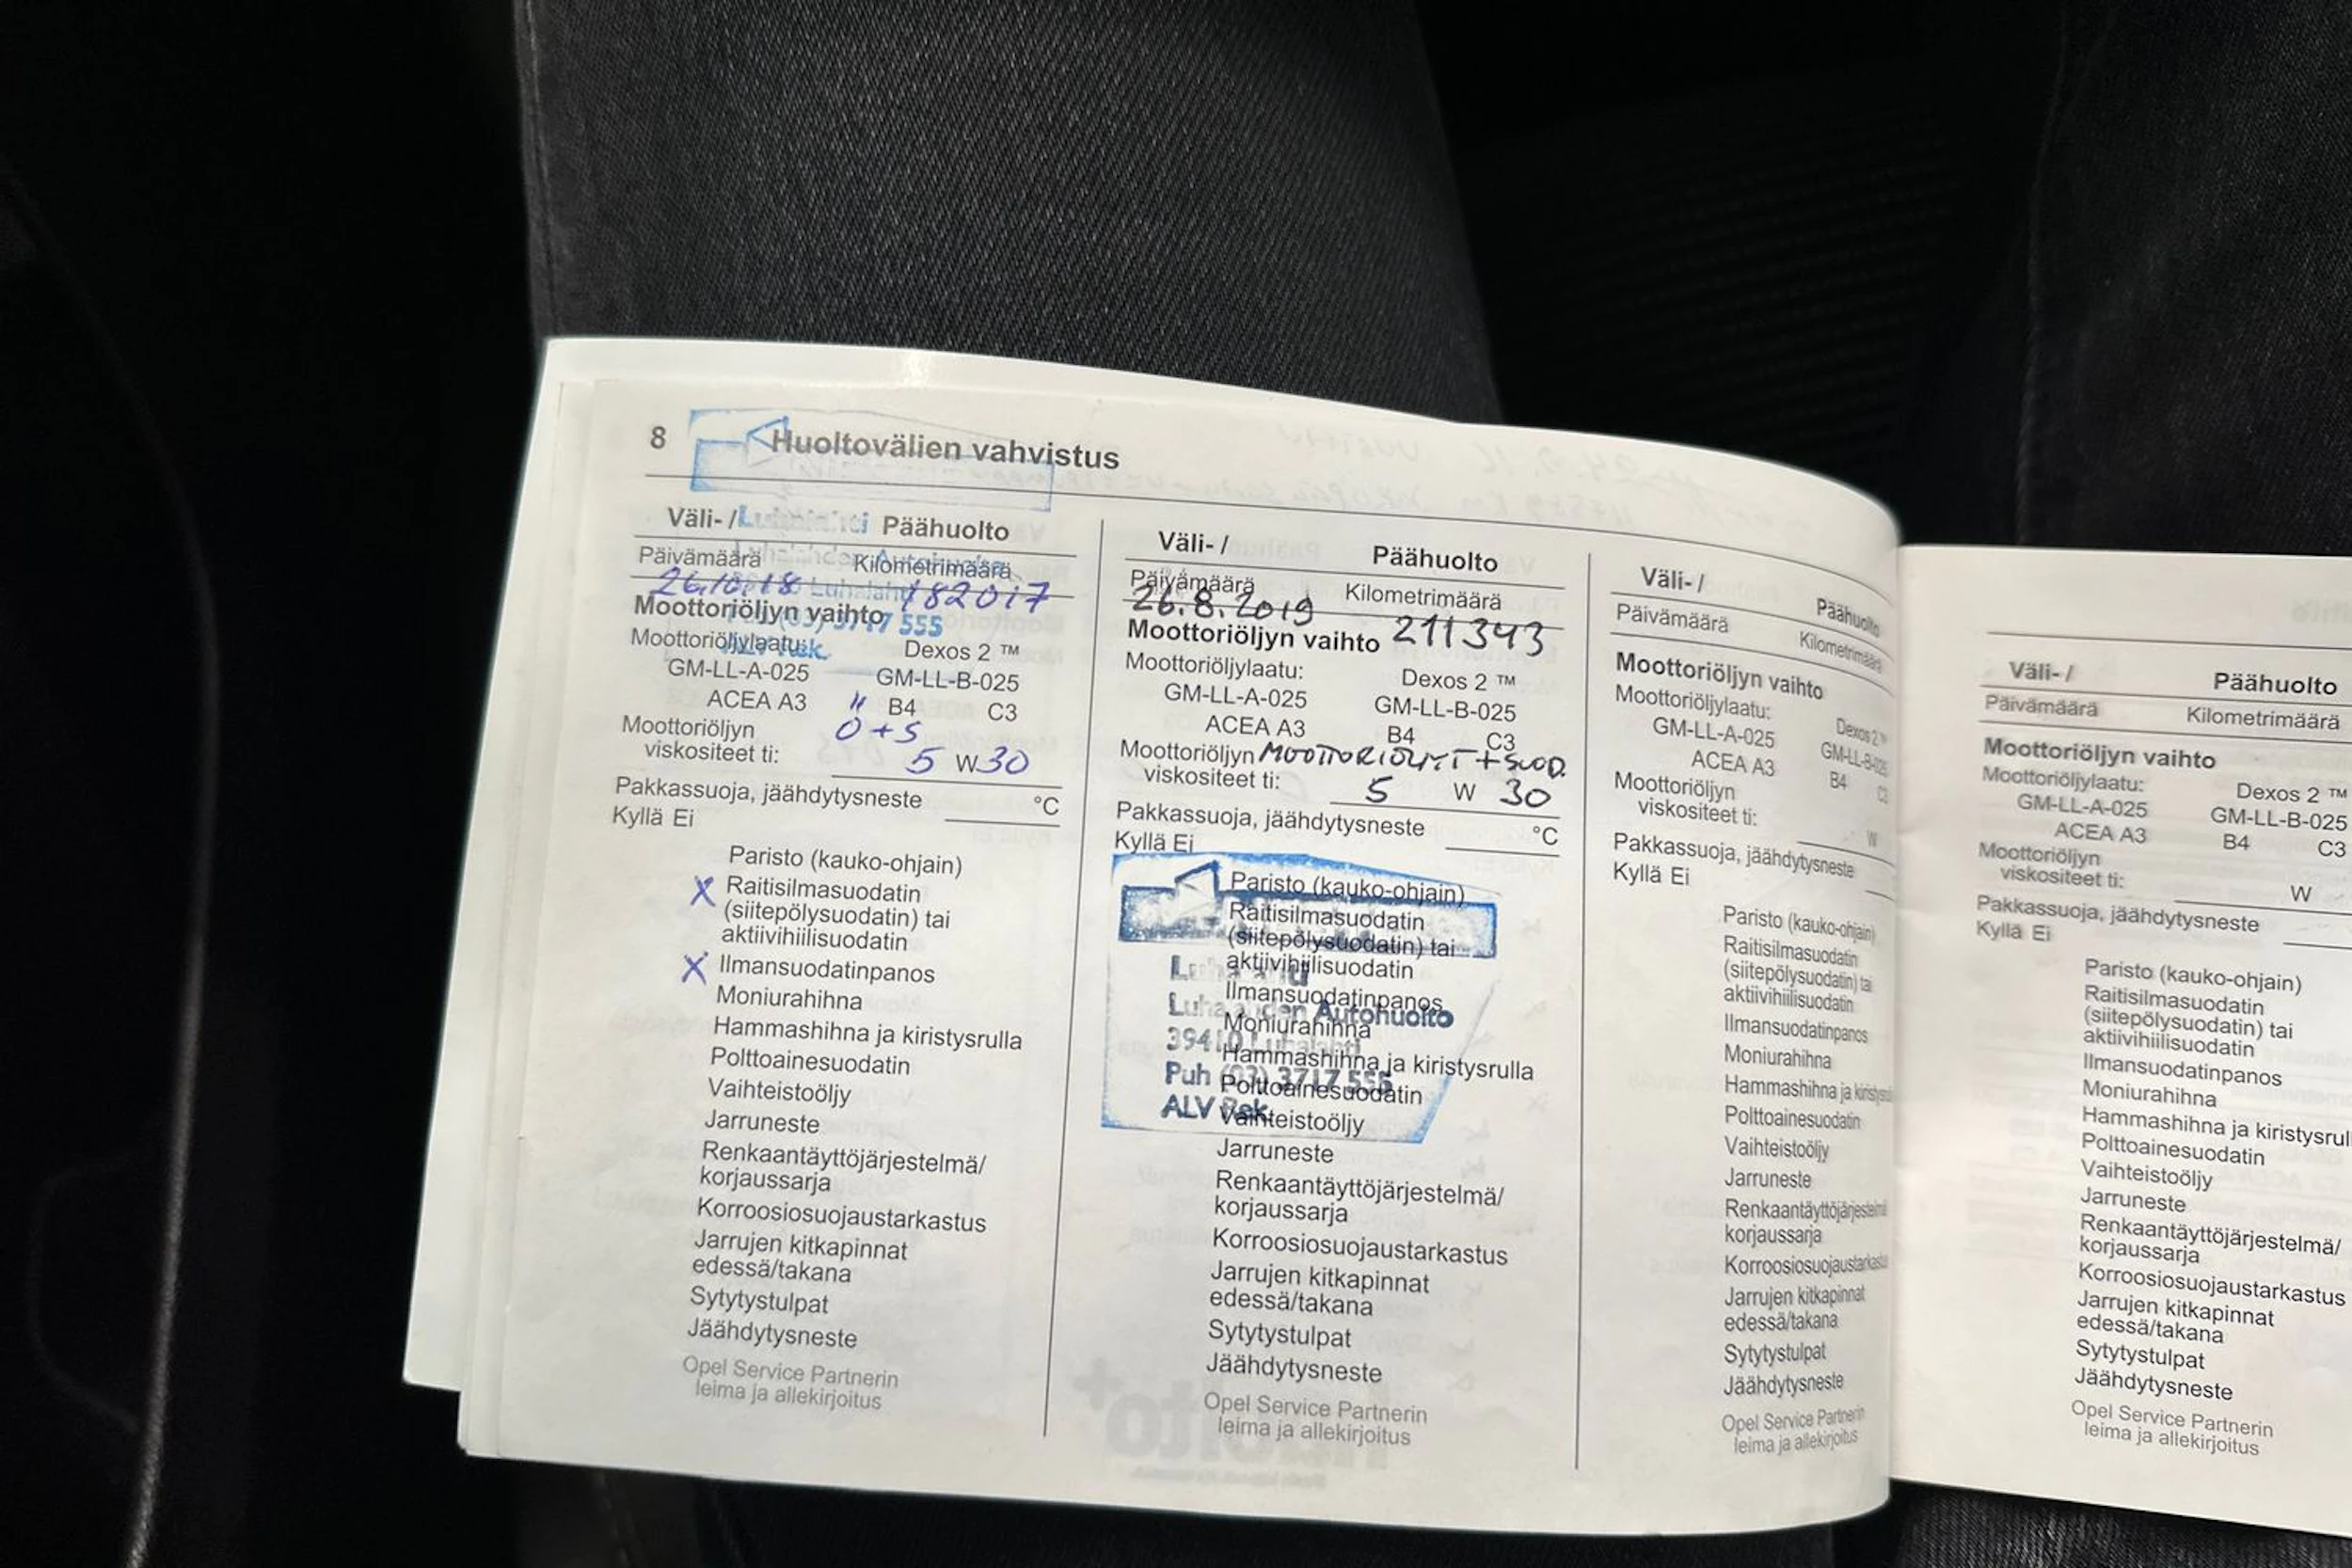 8 Huoltovälien vahvistus
Väli- / Päähuolto
Päivämäärä Kilometrimäärä
26.10.18 182017
Moottoriöljyn vaihto
Moottoriöljylaatu: Dexos 2 ™
GM-LL-A-025 GM-LL-B-025
ACEA A3 B4 C3
Moottoriöljyn Ö+S
viskositeet ti: 5 W 30
Pakkassuoja, jäähdytysneste °C
Kyllä Ei
Paristo (kauko-ohjain)
X Raitisilmasuodatin
(siitepölysuodatin) tai
aktiivihiilisuodatin
X Ilmansuodatinpanos
Moniurahihna
Hammashihna ja kiristysrulla
Polttoainesuodatin
Vaihteistoöljy
Jarruneste
Renkaantäyttöjärjestelmä/
korjaussarja
Korroosiosuojaustarkastus
Jarrujen kitkapinnat
edessä/takana
Sytytystulpat
Jäähdytysneste
Opel Service Partnerin
leima ja allekirjoitus
Luhalahden Autohuolto
Luhalahti
Puh (03) 3717 555
ALV Rek.
Väli- / Päähuolto
Päivämäärä Kilometrimäärä
26.8.2019 211343
Moottoriöljyn vaihto
Moottoriöljylaatu: Dexos 2 ™
GM-LL-A-025 GM-LL-B-025
ACEA A3 B4 C3
Moottoriöljyn MOOTTORIÖLJYT + SUOD.
viskositeet ti: 5 W 30
Pakkassuoja, jäähdytysneste °C
Kyllä Ei
Paristo (kauko-ohjain)
Raitisilmasuodatin
(siitepölysuodatin) tai
aktiivihiilisuodatin
Ilmansuodatinpanos
Moniurahihna
Hammashihna ja kiristysrulla
Polttoainesuodatin
Vaihteistoöljy
Jarruneste
Renkaantäyttöjärjestelmä/
korjaussarja
Korroosiosuojaustarkastus
Jarrujen kitkapinnat
edessä/takana
Sytytystulpat
Jäähdytysneste
Opel Service Partnerin
leima ja allekirjoitus
Luhalahden Autohuolto
39410 Luhalahti
Puh (03) 3717 555
ALV Rek.
Väli- / Päähuolto
Päivämäärä Kilometrimäärä
Moottoriöljyn vaihto
Moottoriöljylaatu: Dexos 2 ™
GM-LL-A-025 GM-LL-B-025
ACEA A3 B4 C3
Moottoriöljyn
viskositeet ti: W
Pakkassuoja, jäähdytysneste
Kyllä Ei
Paristo (kauko-ohjain)
Raitisilmasuodatin
(siitepölysuodatin) tai
aktiivihiilisuodatin
Ilmansuodatinpanos
Moniurahihna
Hammashihna ja kiristysrul
Polttoainesuodatin
Vaihteistoöljy
Jarruneste
Renkaantäyttöjärjestelmä
korjaussarja
Korroosiosuojaustarkastus
Jarrujen kitkapinnat
edessä/takana
Sytytystulpat
Jäähdytysneste
Opel Service Partnerin
leima ja allekirjoitus
Väli- / Päähuolto
Päivämäärä Kilometrimäärä
Moottoriöljyn vaihto
Moottoriöljylaatu: Dexos 2 ™
GM-LL-A-025 GM-LL-B-025
ACEA A3 B4 C3
Moottoriöljyn
viskositeet ti: W
Pakkassuoja, jäähdytysneste
Kyllä Ei
Paristo (kauko-ohjain)
Raitisilmasuodatin
(siitepölysuodatin) tai
aktiivihiilisuodatin
Ilmansuodatinpanos
Moniurahihna
Hammashihna ja kiristysrul
Polttoainesuodatin
Vaihteistoöljy
Jarruneste
Renkaantäyttöjärjestelmä/
korjaussarja
Korroosiosuojaustarkastus
Jarrujen kitkapinnat
edessä/takana
Sytytystulpat
Jäähdytysneste
Opel Service Partnerin
leima ja allekirjoitus